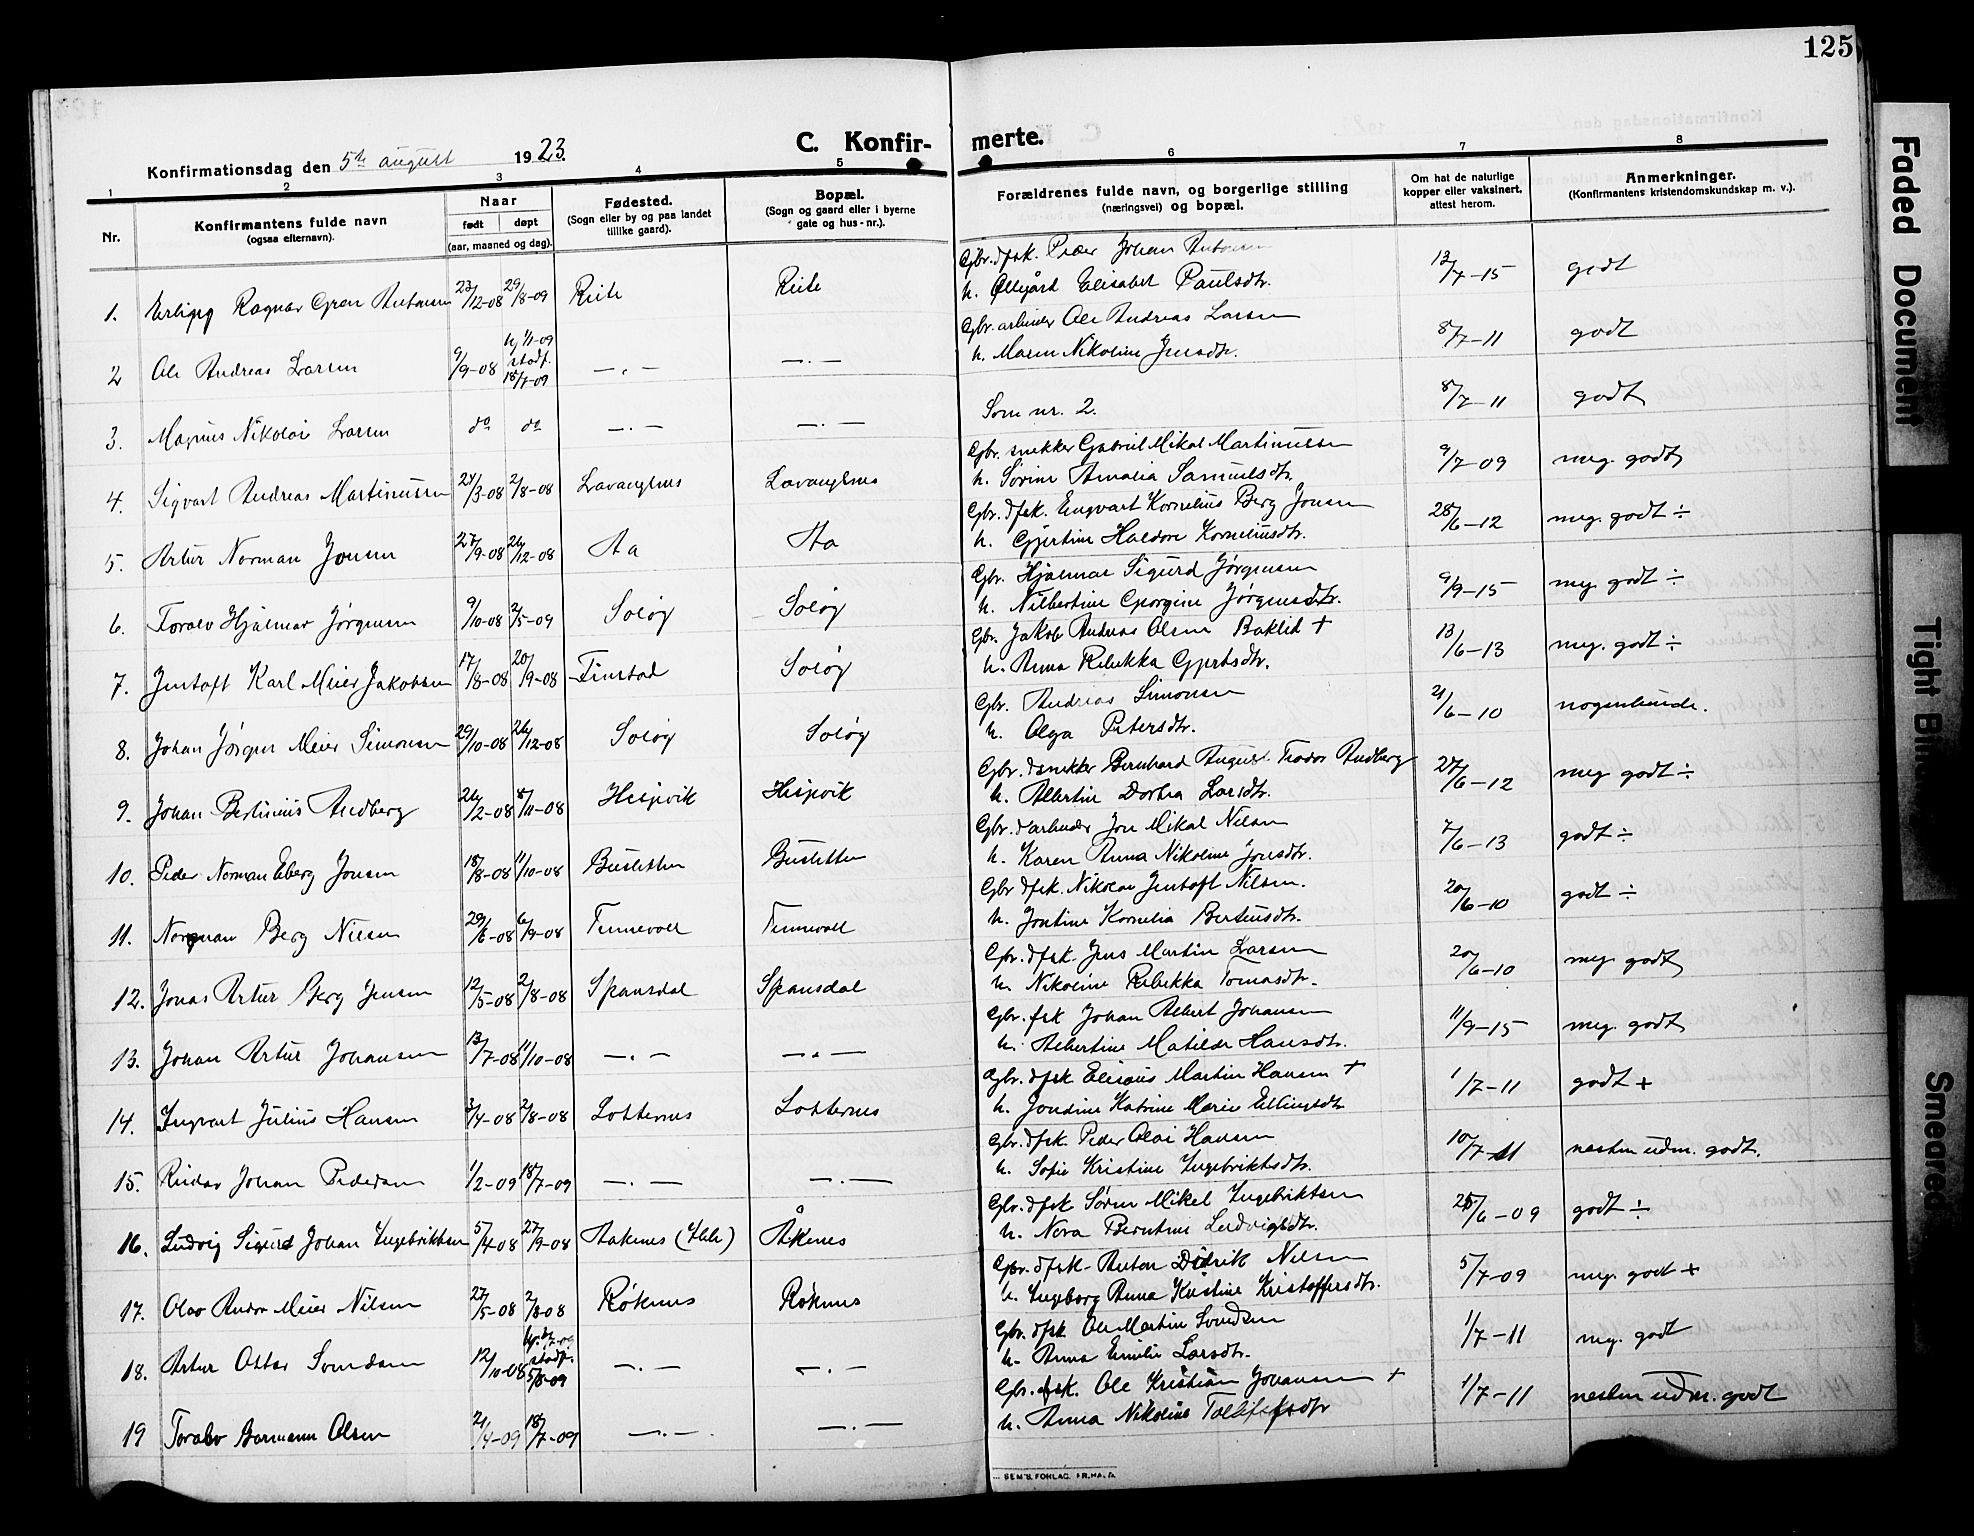 125
C. Konfir-
merte.
Konfirmationsdag den 5te august 1923.
1 2 3 4 5 6 7 8
Nr.
Konfirmantens fulde navn
(ogsaa efternavn).
Naar
født døpt
(aar, maaned og dag).
Fødested.
(Sogn eller by og paa landet
tillike gaard).
Bopæl.
(Sogn og gaard eller i byerne
gate og hus-nr.).
Forældrenes fulde navn, og borgerlige stilling
(næringsvei) og bopæl.
Om hat de naturlige
kopper eller vaksinert.
attest herom.
Anmerkninger.
(Konfirmantens kristendomskundskap m. v.).
Gbr. d fsk. Peder Johan Antonsen
1. Ragnar Gren Antonsen 23/12-08 29/8-09 13/7-15 godt
h. Elisabet Paulsdtr.
Gbr. arbeider Ole Andreas Larsen
2 Ole Andreas Larsen 9/9-08 stadf. 18/7-09 —.— —.— 8/7-11 godt
h. Maren Nikoline Jensdtr.
3. Magnus Nikolai Larsen do do —.— —.— Som nr. 2. 8/7-11 godt
Gbr. snekker Gabriel Mikal Martinussen
4. Sigvart Andreas Martinussen 24/3-08 2/8-08 Lavangsnes Lavangsnes 9/7-09 meg. godt
h. Sørine Amalia Samuelsdtr.
Gbr. d fsk. Engvart Kornelius Berg Jensen
5. Artur Norman Jensen 27/9-08 26/12-08 Aa Aa 28/6-12 meg. godt ÷
h. Gjertine Haldore Korneliusdtr.
Gbr. Hjalmar Sigurd Jørgensen
6. Toralv Hjalmar Jørgensen 9/10-08 2/5-09 Soløy Soløy 9/9-15 meg. godt ÷
h. Nilbertine Georgine Jørgensdtr.
Gbr. Jakob Andreas Olsen Baklid +
7. Jentoft Karl Meier Jakobsen 17/8-08 20/9-08 Finstad Soløy 13/6-13 meg. godt ÷
h. Anna Rebekka Gjertsdtr.
Gbr. Andreas Simonsen
8. Johan Jørgen Meier Simonsen 29/10-08 26/12-08 Soløy Soløy 21/6-10 nogenlunde.
h. Olga Petersdtr.
Gbr. d snekker Bernhard August Teodor Andberg
9. Johan Bertinius Andberg 26/2-08 8/11-08 Hesjevik Hesjevik 27/6-12 meg godt ÷
h. Albertine Dortea Larsdtr.
Gbr. d arbeider Jon Mikal Nilsen
10. Peder Norman Eberg Jonsen 18/8-08 11/10-08 Busletten Busletten 7/6-13 godt ÷
h. Karen Anna Nikoline Jonsdtr.
Gbr d fsk. Nikolai Jentoft Nilsen.
11. Norman Berg Nilsen 29/6-08 6/9-08 Tennevoll Tennevoll 20/6-10 godt ÷
h. Jontine Kornelia Berteusdtr.
Gbr. d fsk. Jens Martin Larsen
12. Jonas Artur Berg Jensen 12/5-08 2/8-08 Spansdal Spansdal 20/6-10 meg. godt
h. Nikoline Rebekka Tomasdtr.
Gbr. fsk Johan Albert Johansen
13. Johan Artur Johansen 13/7-08 11/10-08 —.— —.— 11/9-15 meg. godt
h. Albertine Matilde Hansdtr.
Gbr. d fsk Elisæus Martin Hansen +
14. Ingvart Julius Hansen 3/4-08 2/8-08 Lotternes Lotternes 1/7-11 godt +
h. Jondine Katrine Marie Ellingsdtr
Gbr. d fsk. Peder Olai Hansen
15. Reidar Johan Pedersen 1/2-09 18/7-09 —.— —.— 10/7-11 nesten udm. godt.
h. Sofie Kristine Ingebriktsdtr.
Gbr. d fsk Søren Mikel Ingebriktsen
16. Ludvig Sigurd Johan Ingebriktsen 5/4-08 27/9-08 Aaknes (Ibb.) Åknes 25/6-09 godt ÷
h. Nora Berntine Ludvigsdtr.
Gbr. d fsk- Anton Didrik Nilsen
17. Olav Andor Meier Nilsen 27/5-08 2/8-08 Røknes Røknes 5/7-09 meg. godt +
h. Ingeborg Anna Kristine Kristoffersdtr.
Gbr. d fsk Ole Martin Svendsen
18. Artur Ottar Svendsen 12/10-08 stadf. 5/8-09 —.— —.— 1/7-11 meg. godt
h- Anna Emilie Larsdtr.
Gbr. d fsk. Ole Kristian Johansen +
19 Toralv Olsen 21/4-09 18/7-09 —.— —.— 1/7-11 nesten udm. godt
h. Anna Nikoline
SEM'S FORLAG
Faded Document
Tight
Smeared